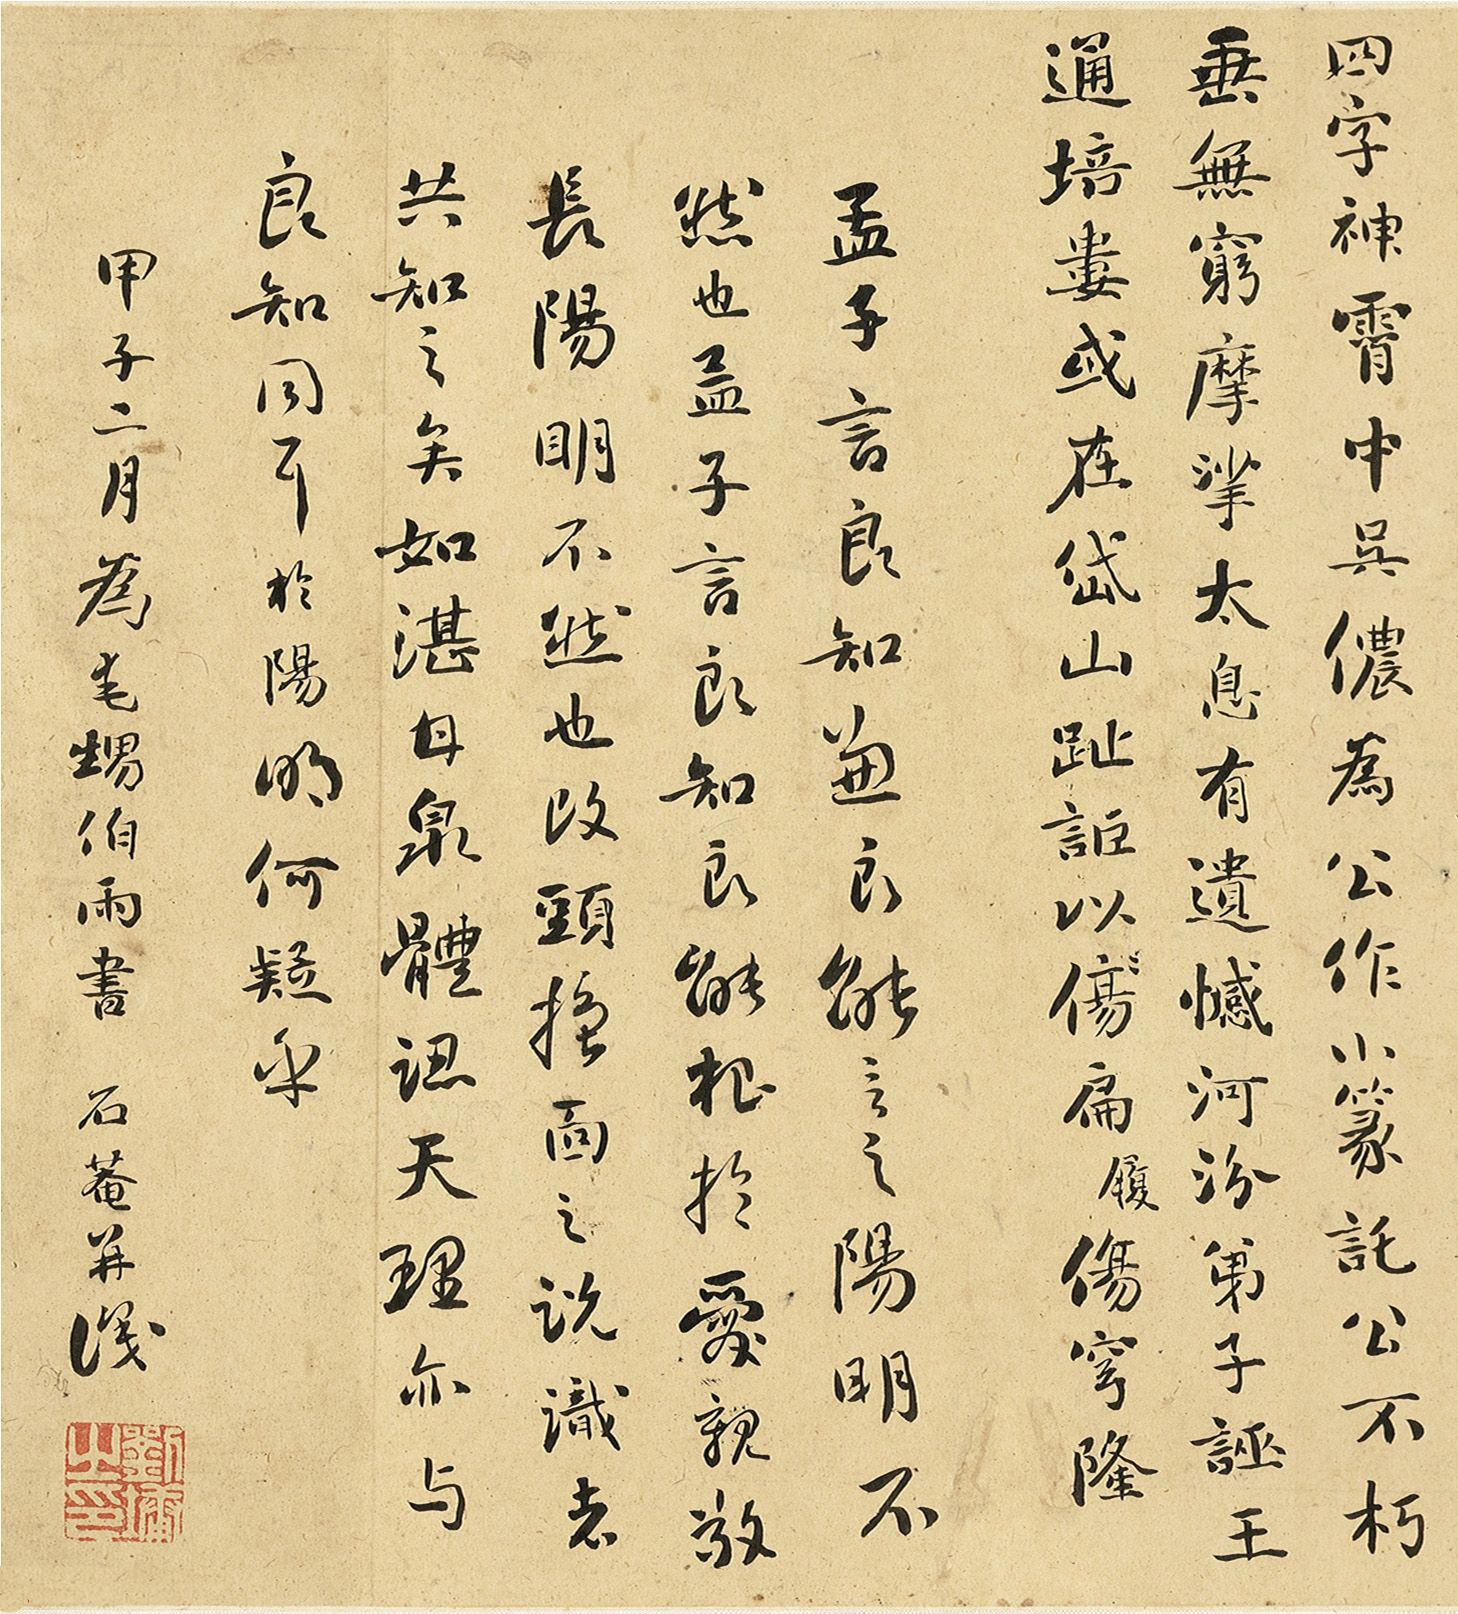 四字神霄中吳儂為公作小篆託公不朽
垂無窮摩挲太息有遺憾河汾弟子誣王
通培嶁或在岱山趾詎以傷扁履傷穹隆
孟子言良知兼良能言之陽明不
然也孟子言良知良能根於愛親敬
長陽明不然也改頭換面之說識者
共知之矣如湛甘泉體認天理亦与
良知同耳於陽明何疑乎
甲子二月為毛甥伯雨書 石菴并識
劉墉之印